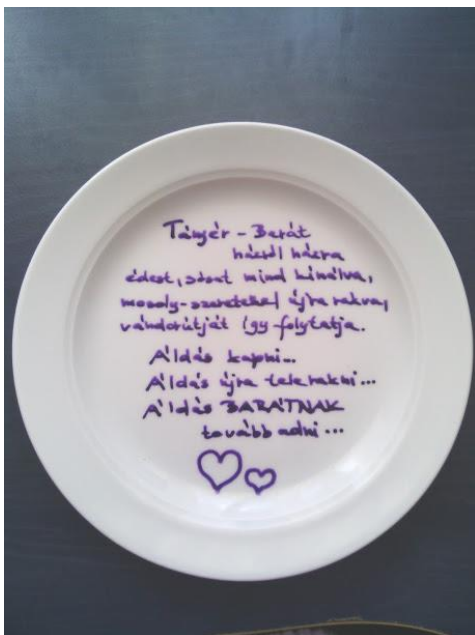 Tányér - Barát
házról házra
édest, sósat mind kínálva,
mosoly-szeretettel újra rakva,
vándorútját így folytatja.
Áldás kapni...
Áldás újra telerakni...
Áldás BARÁTNAK
továbbadni...